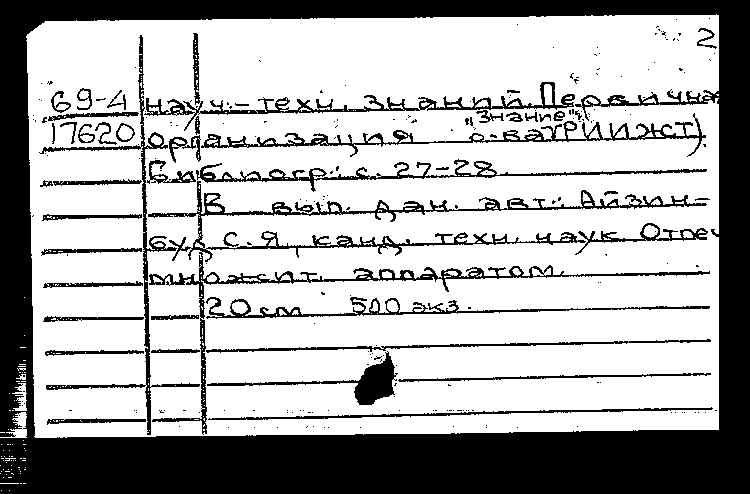 2
69-4 науч.-техн. знаний. Первичная
17620 организация о-ва "Знание" РИИЖТ).
Библиогр.: с. 27-28.
В вып. дан. авт.: Айзин-
буд С.Я, канд. техн. наук. Отпеч
множит. аппаратом.
20 см 500 экз.